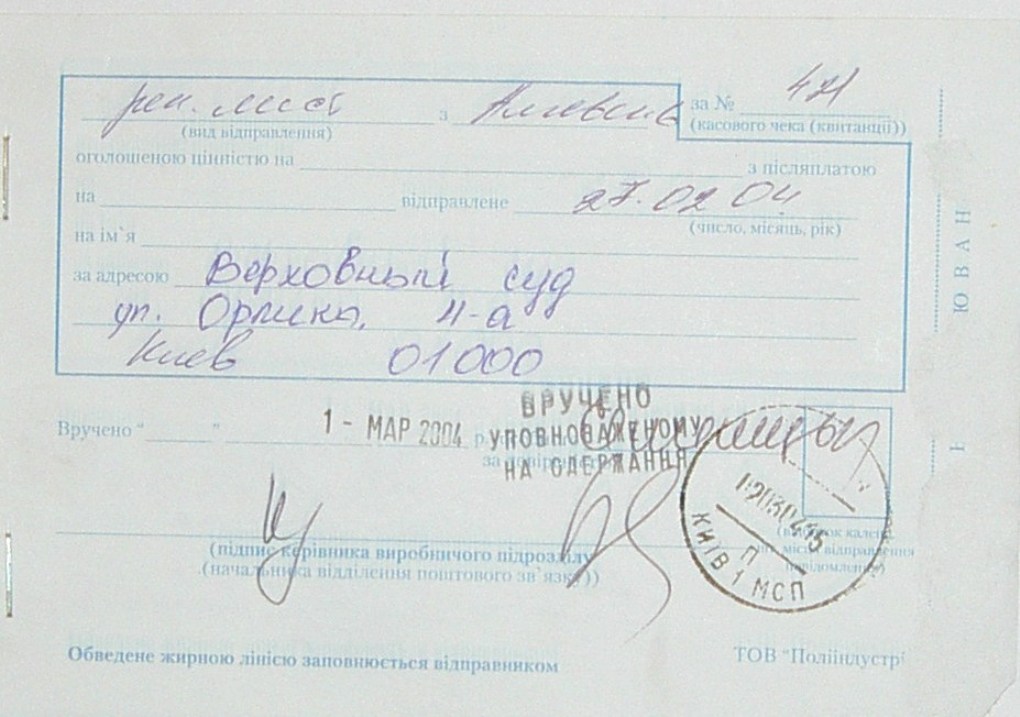 рек. лист з за № 471
(вид відправлення) (касового чека (квитанції))
оголошеною цінністю на з післяплатою
на відправлене 27.02 04
(число, місяць, рік)
на ім`я
за адресою Верховный суд
ул. Орлика, 4-а
Киев 01000
ВРУЧЕНО
Вручено “ ” 1 - МАР 2004 р. УПОВНОВАЖЕНОМУ
НА ОДЕРЖАННЯ
(підпис керівника виробничого підрозділу
(начальника відділення поштового зв`язку))
КИЇВ 1 МСП
П
Обведене жирною лінією заповнюється відправником
ТОВ "Полііндустрі
ЮВАН